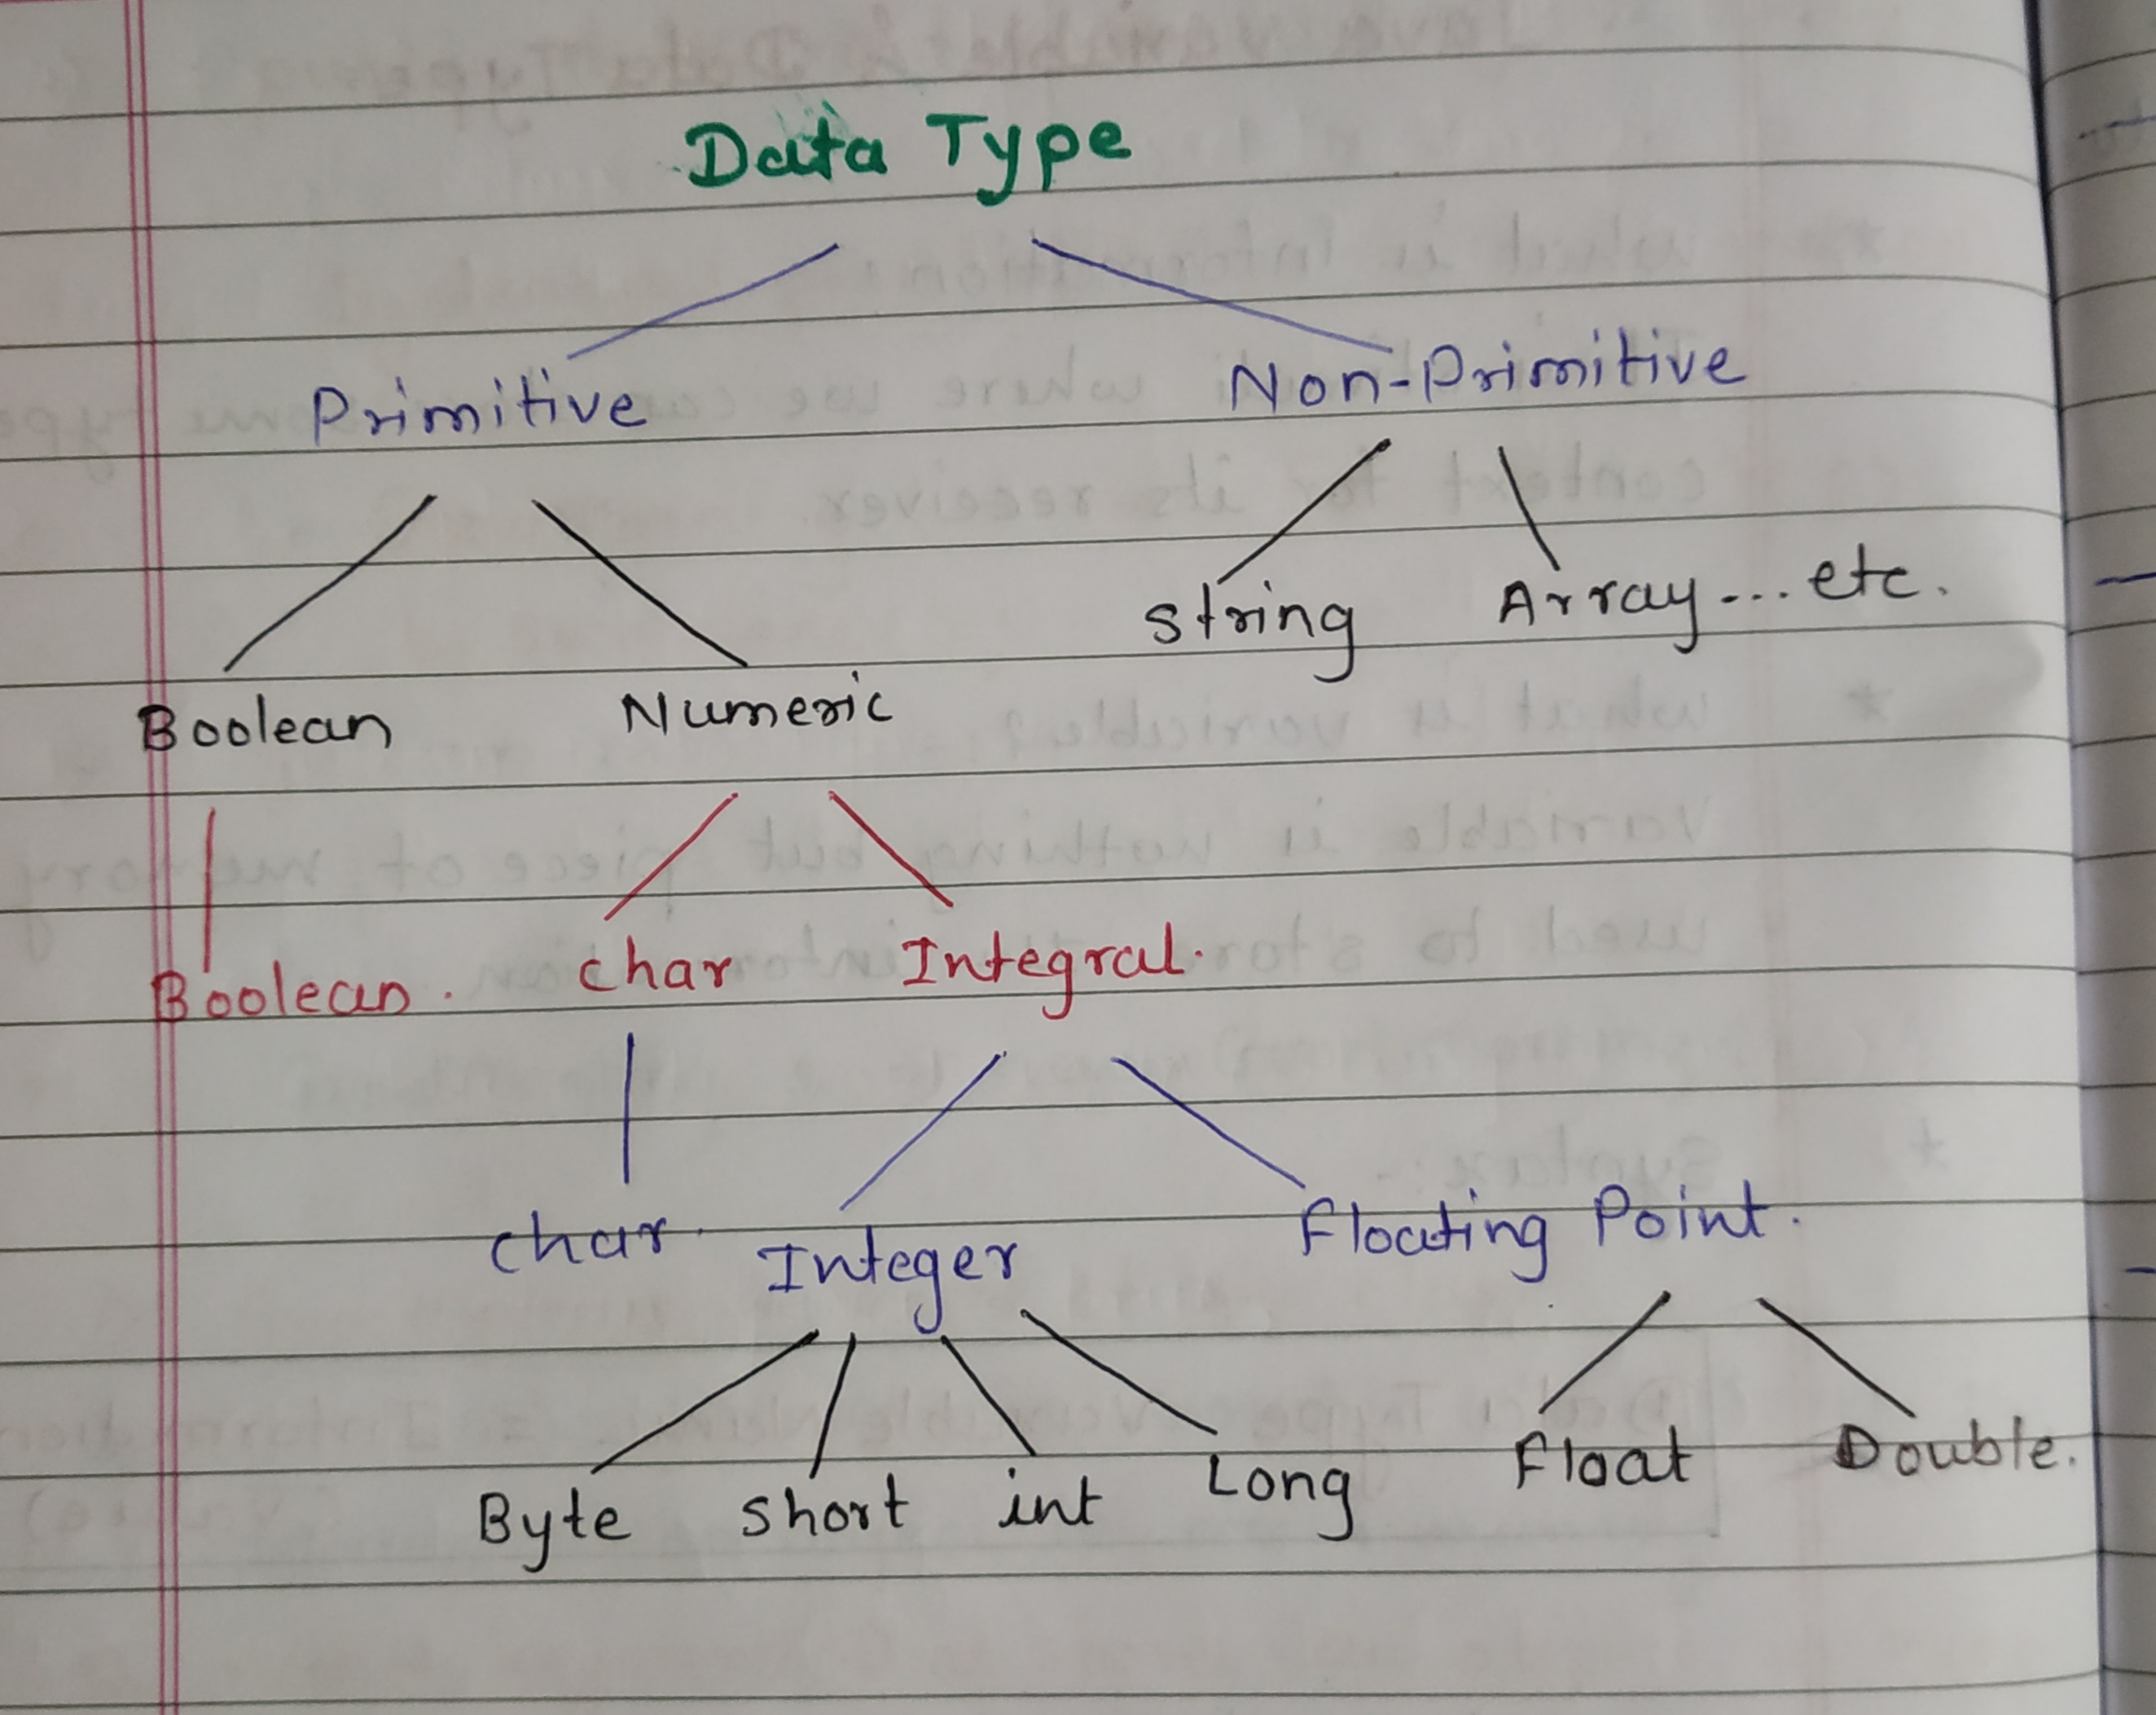 Data Type
Primitive Non-Primitive
string Array ... etc.
Boolean Numeric
Boolean. char Integral.
char. Integer Floating Point.
Byte short int Long Float Double.